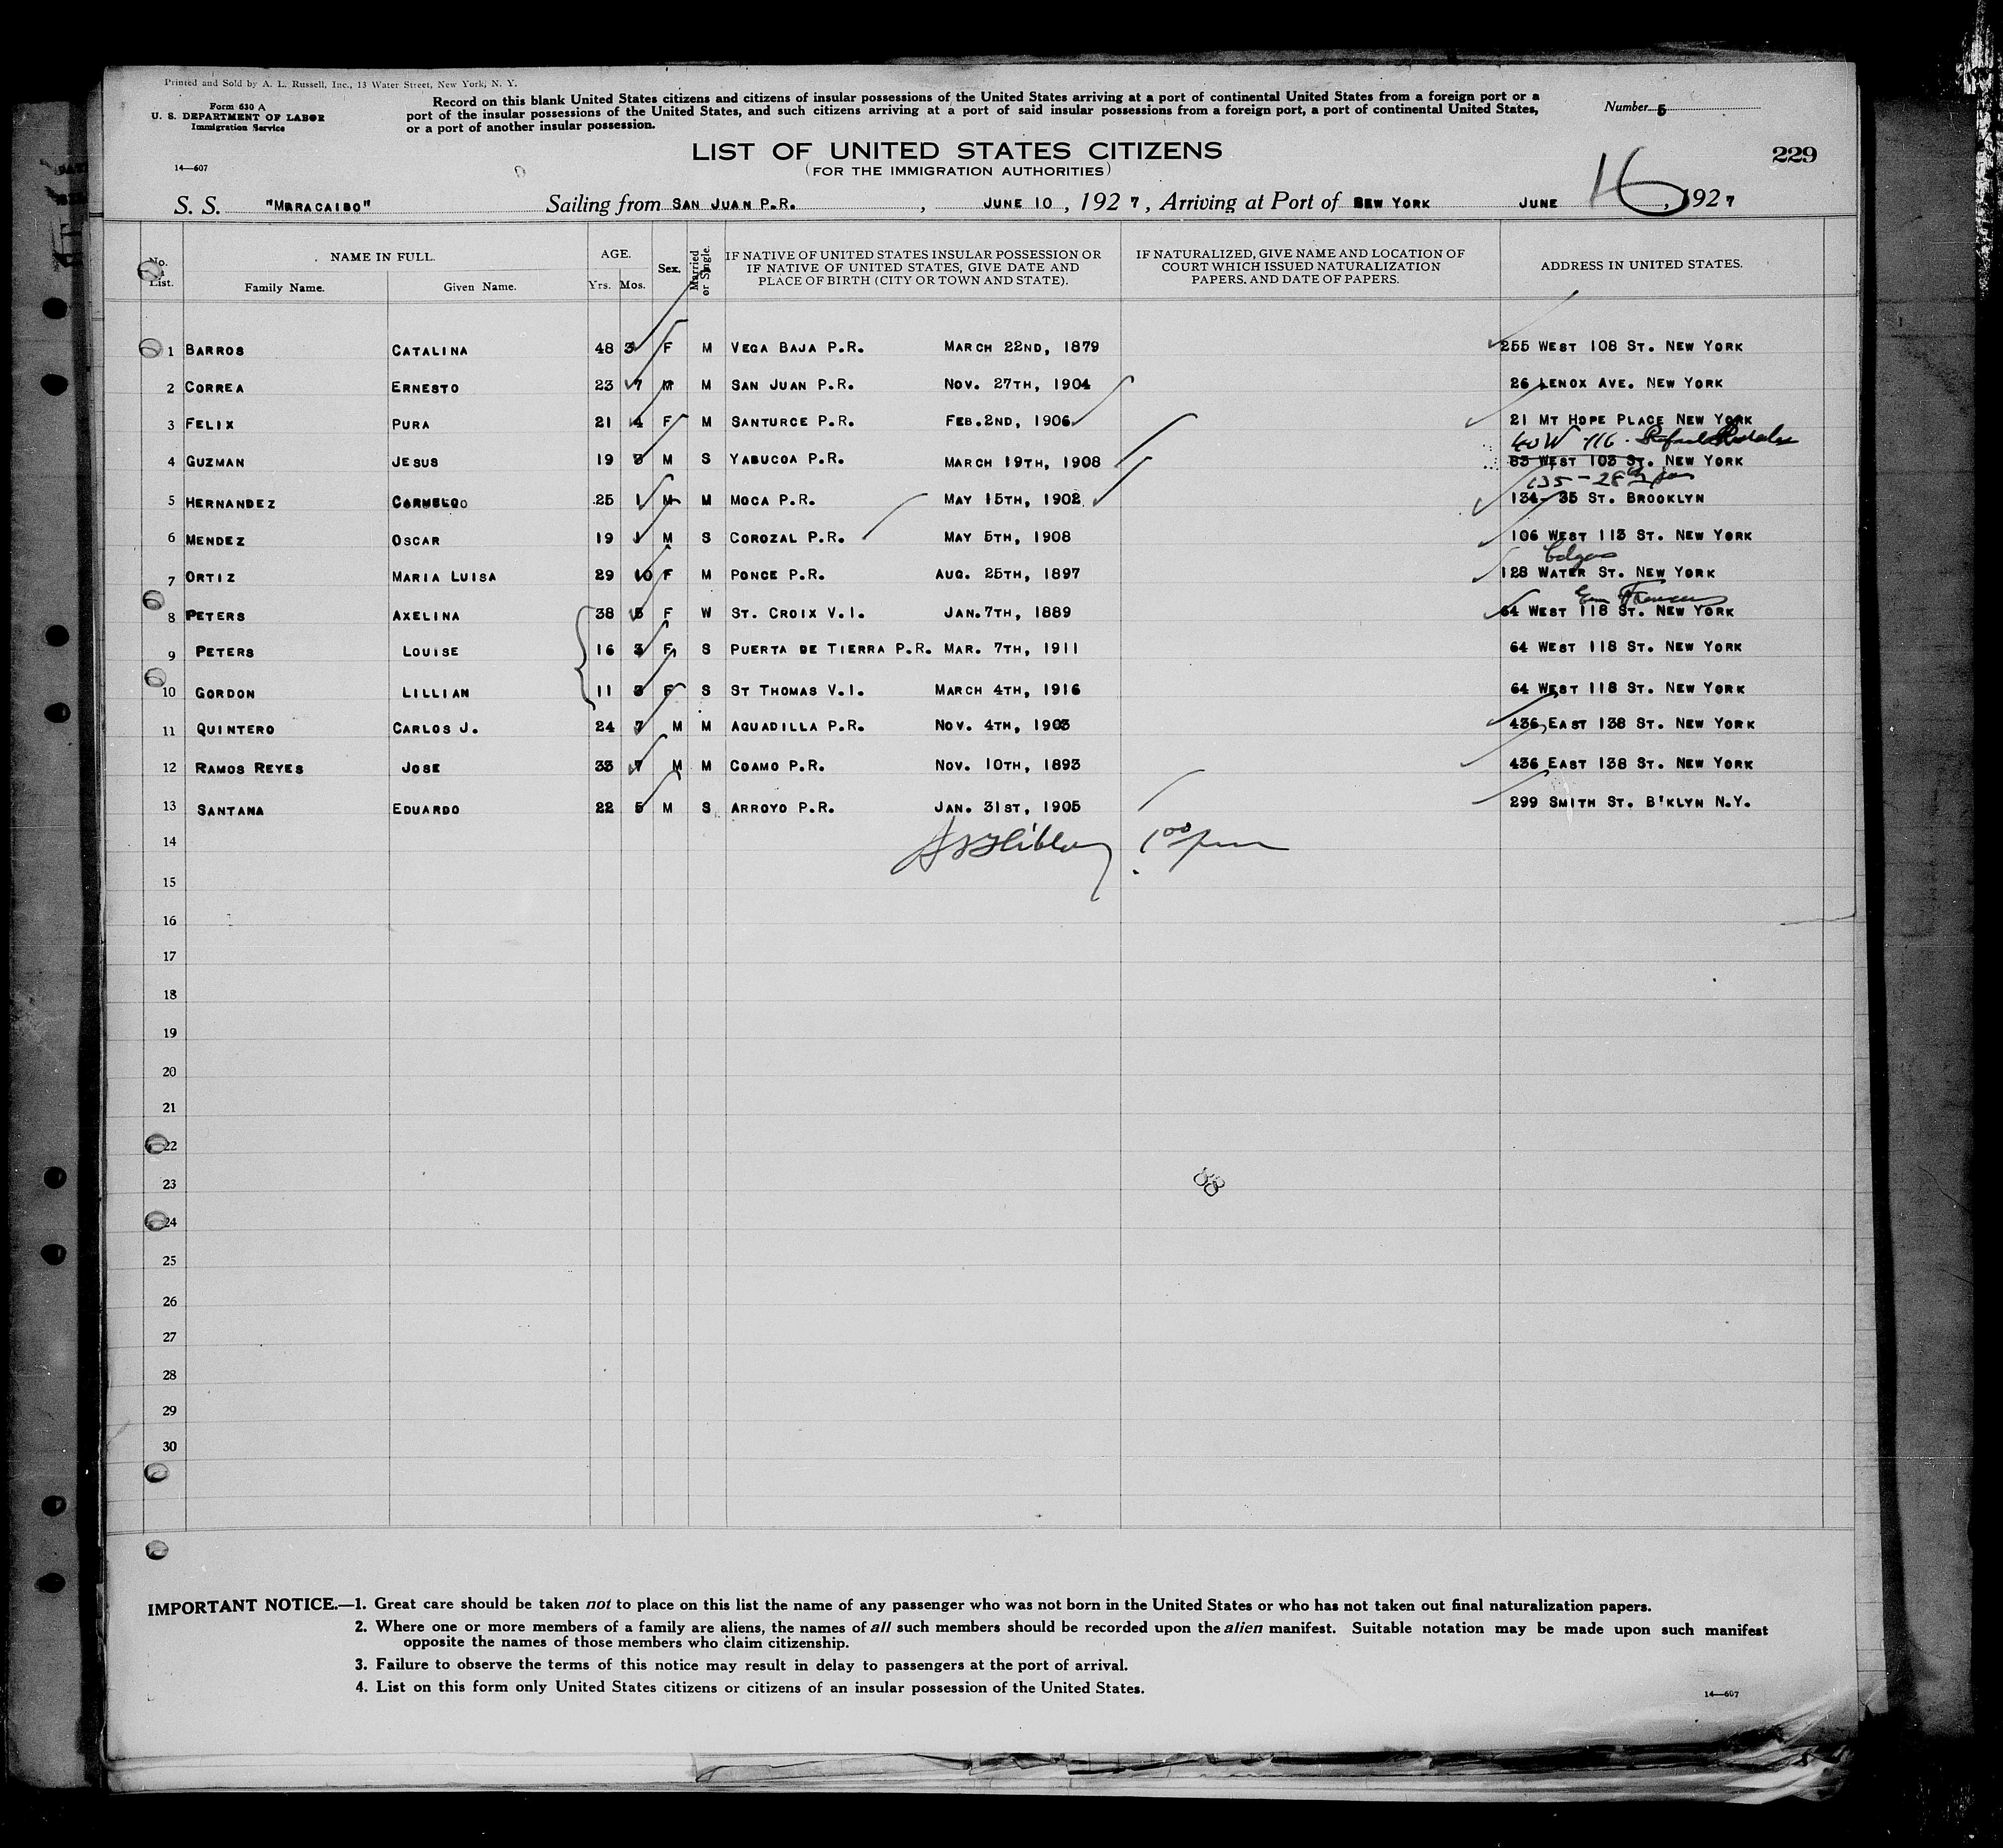 Printed and Sold by A. L. Russell, Inc., 13 Water Street, New York, N. Y.
Form 630 A
U. S. DEPARTMENT OF LABOR
Immigration Service
14—607
Record on this blank United States citizens and citizens of insular possessions of the United States arriving at a port of continental United States from a foreign port or a
port of the insular possessions of the United States, and such citizens arriving at a port of said insular possessions from a foreign port, a port of continental United States,
or a port of another insular possession.
Number 5
229
LIST OF UNITED STATES CITIZENS
(FOR THE IMMIGRATION AUTHORITIES)
S. S. "MARACAIBO" Sailing from SAN JUAN P.R. , JUNE 10 , 1927 , Arriving at Port of NEW YORK JUNE 16 , 1927
No. List. NAME IN FULL. Family Name. Given Name. AGE. Yrs. Mos. Sex. Married or Single. IF NATIVE OF UNITED STATES INSULAR POSSESSION OR IF NATIVE OF UNITED STATES, GIVE DATE AND PLACE OF BIRTH (CITY OR TOWN AND STATE). IF NATURALIZED, GIVE NAME AND LOCATION OF COURT WHICH ISSUED NATURALIZATION PAPERS. AND DATE OF PAPERS. ADDRESS IN UNITED STATES.
1 BARROS CATALINA 48 3 F M VEGA BAJA P.R. MARCH 22ND, 1879 255 WEST 108 ST. NEW YORK
2 CORREA ERNESTO 23 7 M M SAN JUAN P.R. NOV. 27TH, 1904 26 LENOX AVE. NEW YORK
3 FELIX PURA 21 4 F M SANTURCE P.R. FEB. 2ND, 1906 21 MT HOPE PLACE NEW YORK
40 W 116
4 GUZMAN JESUS 19 3 M S YABUCOA P.R. MARCH 19TH, 1908 83 WEST 103 ST. NEW YORK
135 - 28
5 HERNANDEZ CARMELO 25 1 M M MOCA P.R. MAY 15TH, 1902 134- 35 ST. BROOKLYN
6 MENDEZ OSCAR 19 1 M S COROZAL P.R. MAY 5TH, 1908 106 WEST 113 ST. NEW YORK
7 ORTIZ MARIA LUISA 29 10 F M PONCE P.R. AUG. 25TH, 1897 128 WATER ST. NEW YORK
8 PETERS AXELINA 38 5 F W ST. CROIX V.I. JAN. 7TH, 1889 64 WEST 118 ST. NEW YORK
9 PETERS LOUISE 16 3 F S PUERTA DE TIERRA P.R. MAR. 7TH, 1911 64 WEST 118 ST. NEW YORK
10 GORDON LILLIAN 11 3 F S ST THOMAS V.I. MARCH 4TH, 1916 64 WEST 118 ST. NEW YORK
11 QUINTERO CARLOS J. 24 7 M M AGUADILLA P.R. NOV. 4TH, 1903 436 EAST 138 ST. NEW YORK
12 RAMOS REYES JOSE 33 7 M M COAMO P.R. NOV. 10TH, 1893 436 EAST 138 ST. NEW YORK
13 SANTANA EDUARDO 22 5 M S ARROYO P.R. JAN. 31ST, 1905 299 SMITH ST. B'KLYN N.Y.
14 1 00 pm
15
16
17
18
19
20
21
22
23
24
25
26
27
28
29
30
IMPORTANT NOTICE.—1. Great care should be taken not to place on this list the name of any passenger who was not born in the United States or who has not taken out final naturalization papers.
2. Where one or more members of a family are aliens, the names of all such members should be recorded upon the alien manifest. Suitable notation may be made upon such manifest
opposite the names of those members who claim citizenship.
3. Failure to observe the terms of this notice may result in delay to passengers at the port of arrival.
4. List on this form only United States citizens or citizens of an insular possession of the United States.
14—607